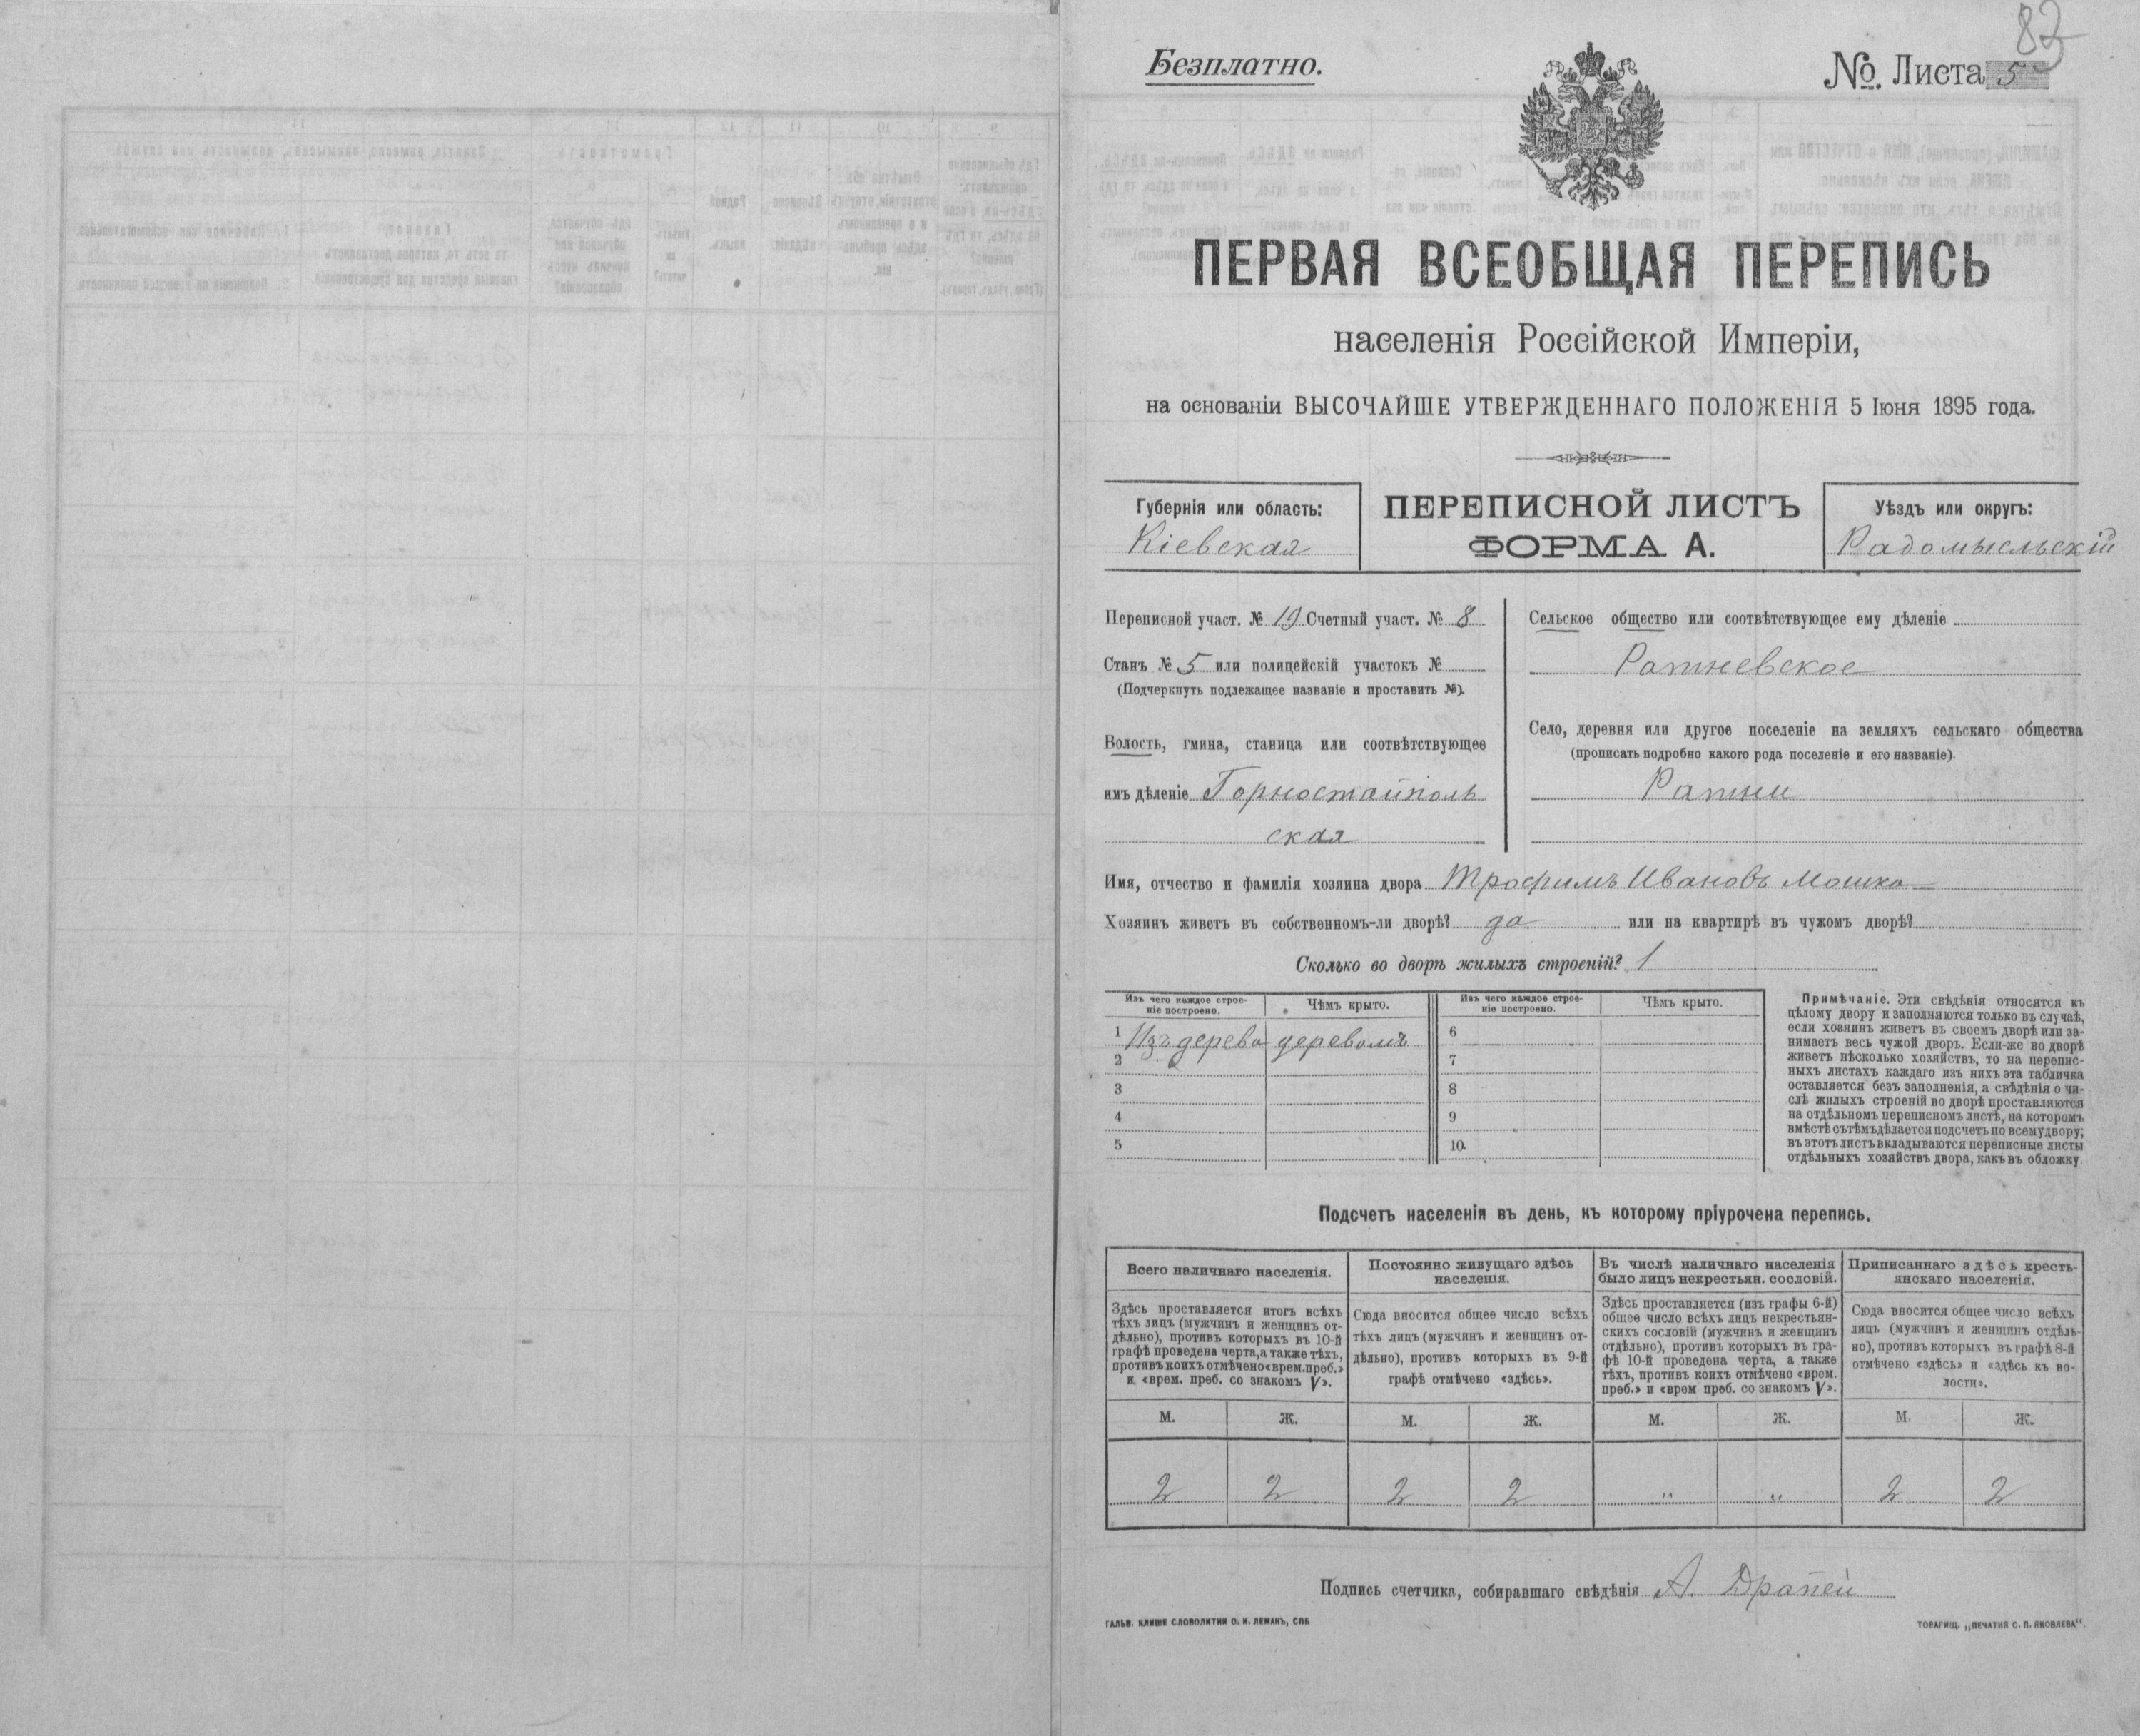 83
Безплатно.
№ Листа 5
ПЕРВАЯ ВСЕОБЩАЯ ПЕРЕПИСЬ
населенія Россійской Имперіи,
на основаніи ВЫСОЧАЙШЕ УТВЕРЖДЕННАГО ПОЛОЖЕНІЯ 5 Іюня 1895 года.
Губернія или область:
Кіевская
ПЕРЕПИСНОЙ ЛИСТЪ
ФОРМА А.
Уѣздъ или округъ:
Радомысльскій
Переписной участ. № 19 Счетный участ. № 8
Станъ № 5 или полицейскій участокъ №
(Подчеркнуть подлежащее названіе и проставить №).
Волость, гмина, станица или соотвѣтствующее
имъ дѣленіе Горностайполь
ская
Сельское общество или соотвѣтствующее ему дѣленіе
Ратневское
Село, деревня или другое поселеніе на земляхъ сельскаго общества
(прописать подробно какого рода поселеніе и его названіе).
Ратни
Имя, отчество и фамилія хозяина двора Трофимъ Ивановъ Мошко
Хозяинъ живетъ въ собственномъ-ли дворѣ? да или на квартирѣ въ чужомъ дворѣ?
Сколько во дворѣ жилыхъ строеній? 1
Изъ чего каждое строе-
ніе построено.
Чѣмъ крыто.
Изъ чего каждое строе-
ніе построено.
Чѣмъ крыто.
1 Изъ дерева деревомъ 6
2 7
3 8
4 9
5 10.
Примѣчаніе. Эти свѣдѣнія относятся къ
цѣлому двору и заполняются только въ случаѣ,
если хозяинъ живетъ въ своемъ дворѣ или за-
нимаетъ весь чужой дворъ. Если-же во дворѣ
живетъ нѣсколько хозяйствъ, то на перепис-
ныхъ листахъ каждаго изъ нихъ эта табличка
оставляется безъ заполненія, а свѣдѣнія о чи-
слѣ жилыхъ строеній во дворѣ проставляются
на отдѣльномъ переписномъ листѣ, на которомъ
вмѣстѣ съ тѣмъ дѣлается подсчетъ по всему двору;
въ этотъ листъ вкладываются переписные листы
отдѣльныхъ хозяйствъ двора, какъ въ обложку.
Подсчетъ населенія въ день, къ которому пріурочена перепись.
Всего наличнаго населенія.
Здѣсь проставляется итогъ всѣхъ
тѣхъ лицъ (мужчинъ и женщинъ от-
дѣльно), противъ которыхъ въ 10-й
графѣ проведена черта, а также тѣхъ,
противъ коихъ отмѣчено «врем. преб.»
и «врем. преб. со знакомъ V».
Постоянно живущаго здѣсь
населенія.
Сюда вносится общее число всѣхъ
тѣхъ лицъ (мужчинъ и женщинъ от-
дѣльно), противъ которыхъ въ 9-й
графѣ отмѣчено «здѣсь».
Въ числѣ наличнаго населенія
было лицъ некрестьян. сословій.
Здѣсь проставляется (изъ графы 6-й)
общее число всѣхъ лицъ некрестьян-
скихъ сословій (мужчинъ и женщинъ
отдѣльно), противъ которыхъ въ гра-
фѣ 10-й проведена черта, а также
тѣхъ, противъ коихъ отмѣчено «врем.
преб.» и «врем преб. со знакомъ V».
Приписаннаго здѣсь кресть-
янскаго населенія.
Сюда вносится общее число всѣхъ
лицъ (мужчинъ и женщинъ отдѣль-
но), противъ которыхъ въ графѣ 8-й
отмѣчено «здѣсь» и «здѣсь къ во-
лости».
М. Ж. М. Ж. М. Ж. М. Ж.
2 2 2 2 " " 2 2
Подпись счетчика, собиравшаго свѣдѣнія А. Драпей
ГАЛЬВ. КЛИШЕ СЛОВОЛИТНИ О. И. ЛЕМАНЪ, СПБ
ТОВАРИЩ. „ПЕЧАТНЯ С. П. ЯКОВЛЕВА".